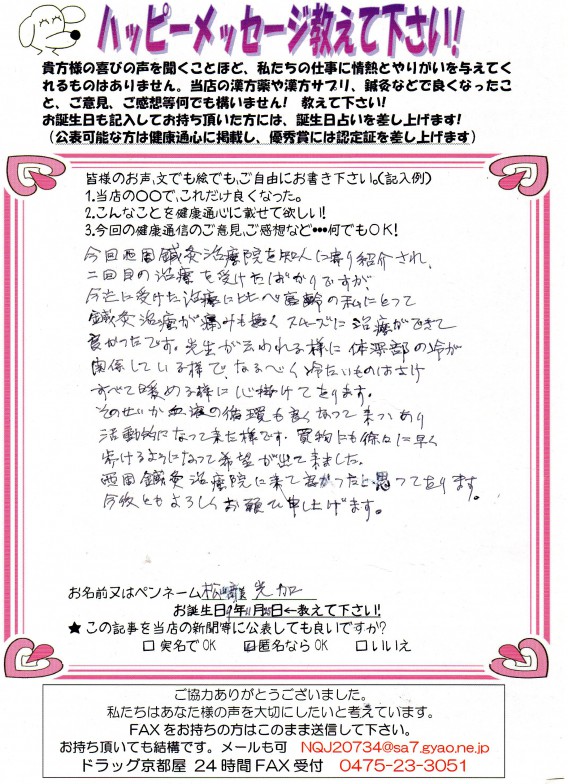 ハッピーメッセージ教えて下さい!
貴方様の喜びの声を聞くことほど、私たちの仕事に情熱とやりがいを与えてく
れるものはありません。当店の漢方薬や漢方サプリ、鍼灸などで良くなったこ
と、ご意見、ご感想等何でも構いません! 教えて下さい!
お誕生日も記入してお持ち頂いた方には、誕生日占いを差し上げます!
(公表可能な方は健康通心に掲載し、優秀賞には認定証を差し上げます)
皆様のお声、文でも絵でも、ご自由にお書き下さい。(記入例)
1.当店の〇〇で、これだけ良くなった。
2.こんなことを健康通心に載せて欲しい!
3.今回の健康通信のご意見、ご感想など・・・何でもOK!
今回西岡鍼灸治療院を知人に寄り紹介され、
二回目の治療を受けたばかりですが、
今迄に受けた治療にくらべ高齢の私にとって
鍼灸治療が痛みも無くスムーズに治療ができて
良かったです。先生が云われる様に体深部の冷が
関係している様で、なるべく冷たいものはさけ
すべて暖める様に心掛けております。
そのせいか血液の循環も良くなって来つつあり
活動的になって来た様です。買物にも徐々に早く
歩けるようになって希望が出て来ました。
西岡鍼灸治療院に来て良かったと思っております。
今後ともよろしくお願い申し上げます。
お名前又はペンネーム 松崎 光加
お誕生日 年11月 日←教えて下さい!
★この記事を当店の新聞等に公表しても良いですか?
□実名でOK ☑匿名なら OK □いいえ
ご協力ありがとうございました。
私たちはあなた様の声を大切にしたいと考えています。
FAXをお持ちの方はこのまま送信して下さい。
お持ち頂いても結構です。メールも可 NQJ20734@sa7.gyao.ne.jp
ドラッグ京都屋 24時間FAX受付 0475-23-3051